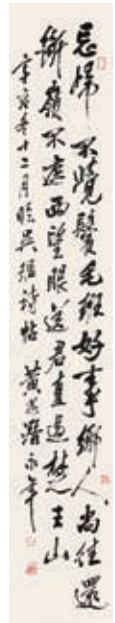 忘歸不覺鬢毛斑好事鄉人尚往還
斷嶺不遮西望眼送君直過楚王山
十二月臨吳琚詩帖 黃